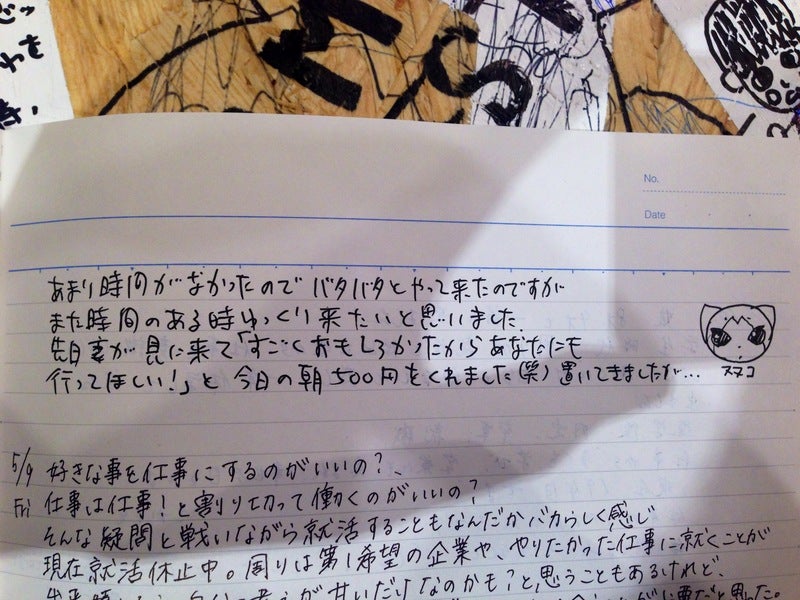 No.
Date
あまり時間がなかったのでバタバタとやって来たのですが
また時間のある時ゆっくり来たいと思いました。
先日妻が見に来て「すごくおもしろかったからあなたにも
行ってほしい!」と今日の朝500円をくれました(笑)置いてきましたが…
スヌコ
5/9 好きな事を仕事にするのがいいの?、
Fri 仕事は仕事!と割り切って働くのがいいの?
そんな疑問と戦いながら就活することもなんだかバカらしく感じ
現在就活休止中。周りは第1希望の企業や、やりたかった仕事に就くことが
考えが甘いだけなのかも?と思うこともあるけれど、